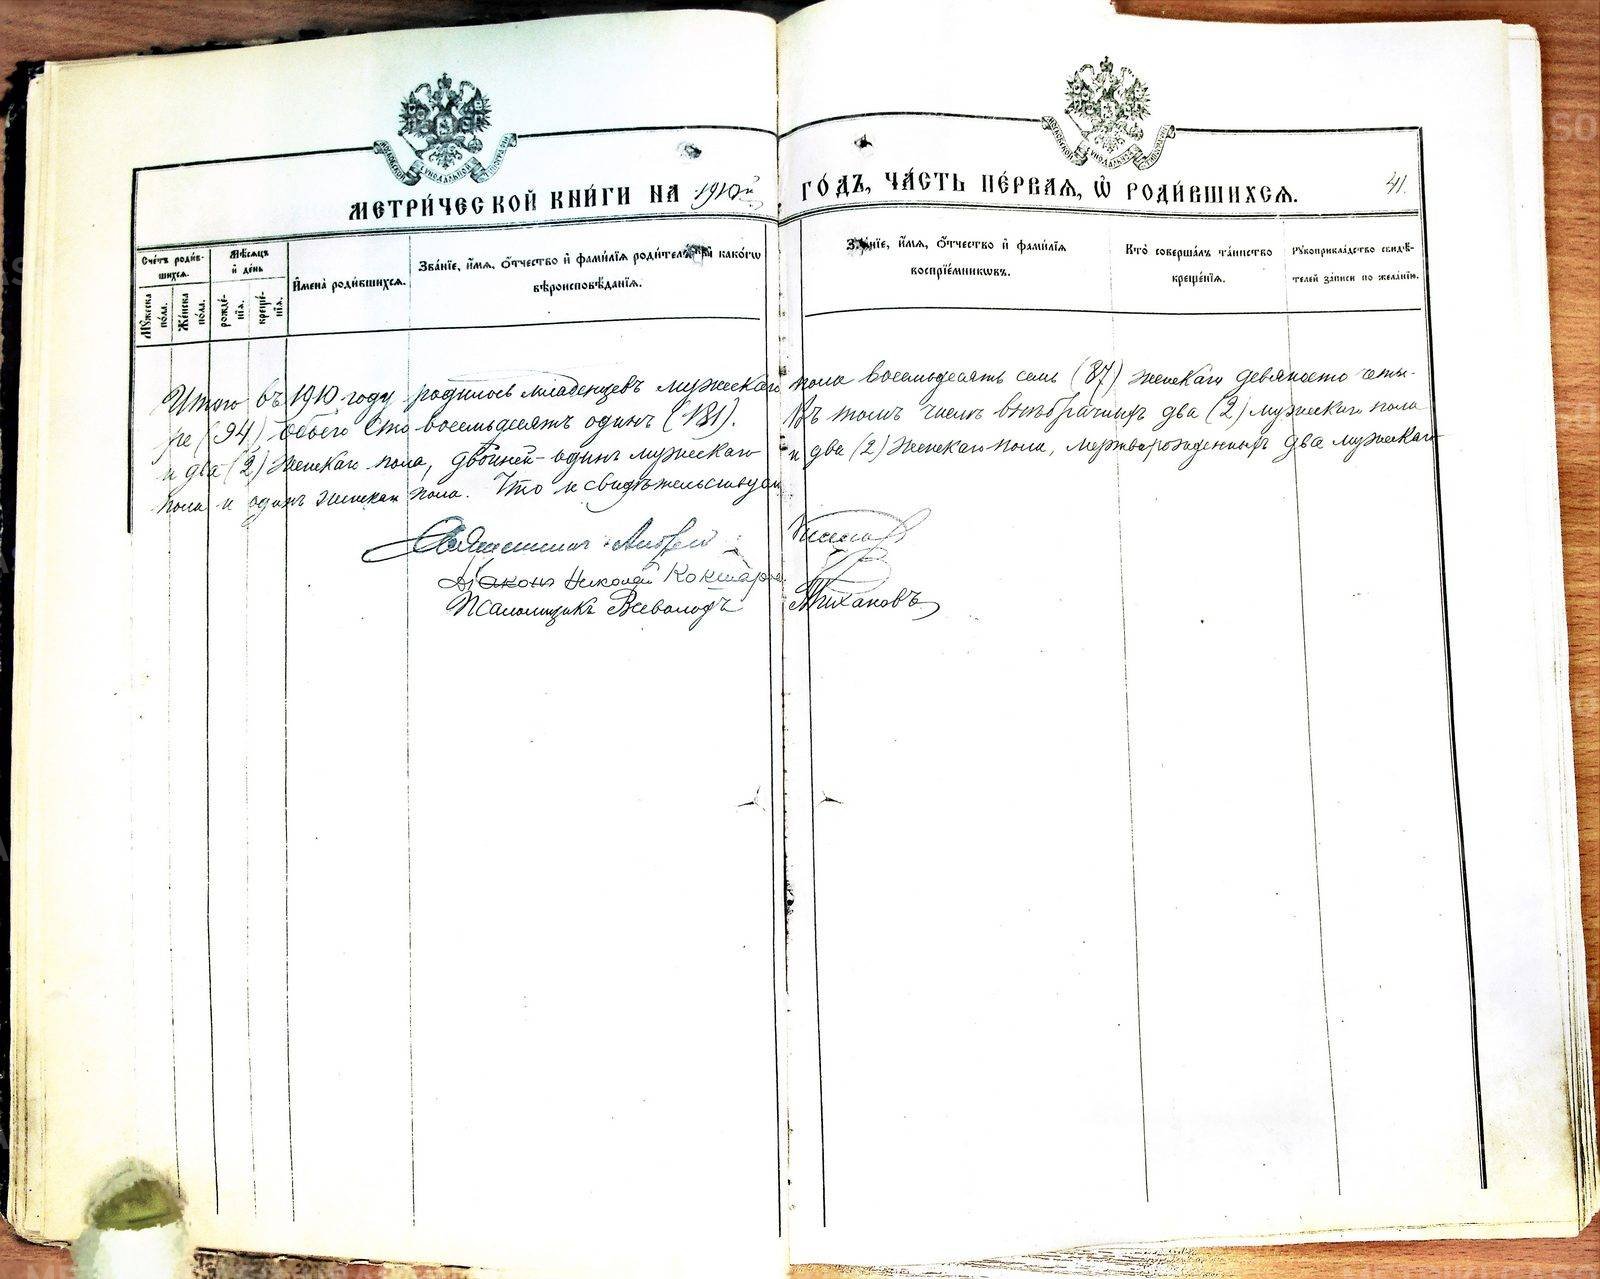 МЕТРИ́ЧЕСКОЙ КНИ́ГИ НА 1910й ГО́ДЪ, ЧА́СТЬ ПЕ́РВАѦ, Ѿ РОДИ́ВШИХСѦ.
41.
Сче́тъ роди́в-
шихсѧ.
Мꙋ́жеска по́ла.
Же́нска по́ла.
Мѣ́сѧцъ
и҆ де́нь
рожде́-
нїѧ.
креще́-
нїѧ.
И҆мена̀ роди́вшихсѧ.
Зва́нїе, и҆́мѧ, ѻ҆́тчество и҆ фами́лїѧ роди́телей, и҆ како́гѡ
вѣроисповѣ́данїѧ.
Зва́нїе, и҆́мѧ, ѻ҆́тчество и҆ фами́лїѧ
воспрїе́мникѡвъ.
Кто̀ соверша́лъ та́инство
креще́нїѧ.
Рꙋкоприкла́дство свидѣ́-
телей за́писи по жела́нїю.
Итого въ 1910 году родилось младенцевъ мужескаго пола восемьдесятъ семь (87) женскаго девяносто четы-
ре (94) обоего сто восемьдесятъ одинъ (181). Въ томъ числѣ внѣбрачныхъ два (2) мужескаго пола
и два (2) женскаго пола, двойней - одинъ мужескаго и два (2) женскаго пола, мертворожденныхъ два мужескаго
пола и одинъ женскаго пола. Что и свидѣтельствуемъ
Священникъ Андрей
Діаконъ Николай
Псаломщикъ Всеволодъ Тихановъ